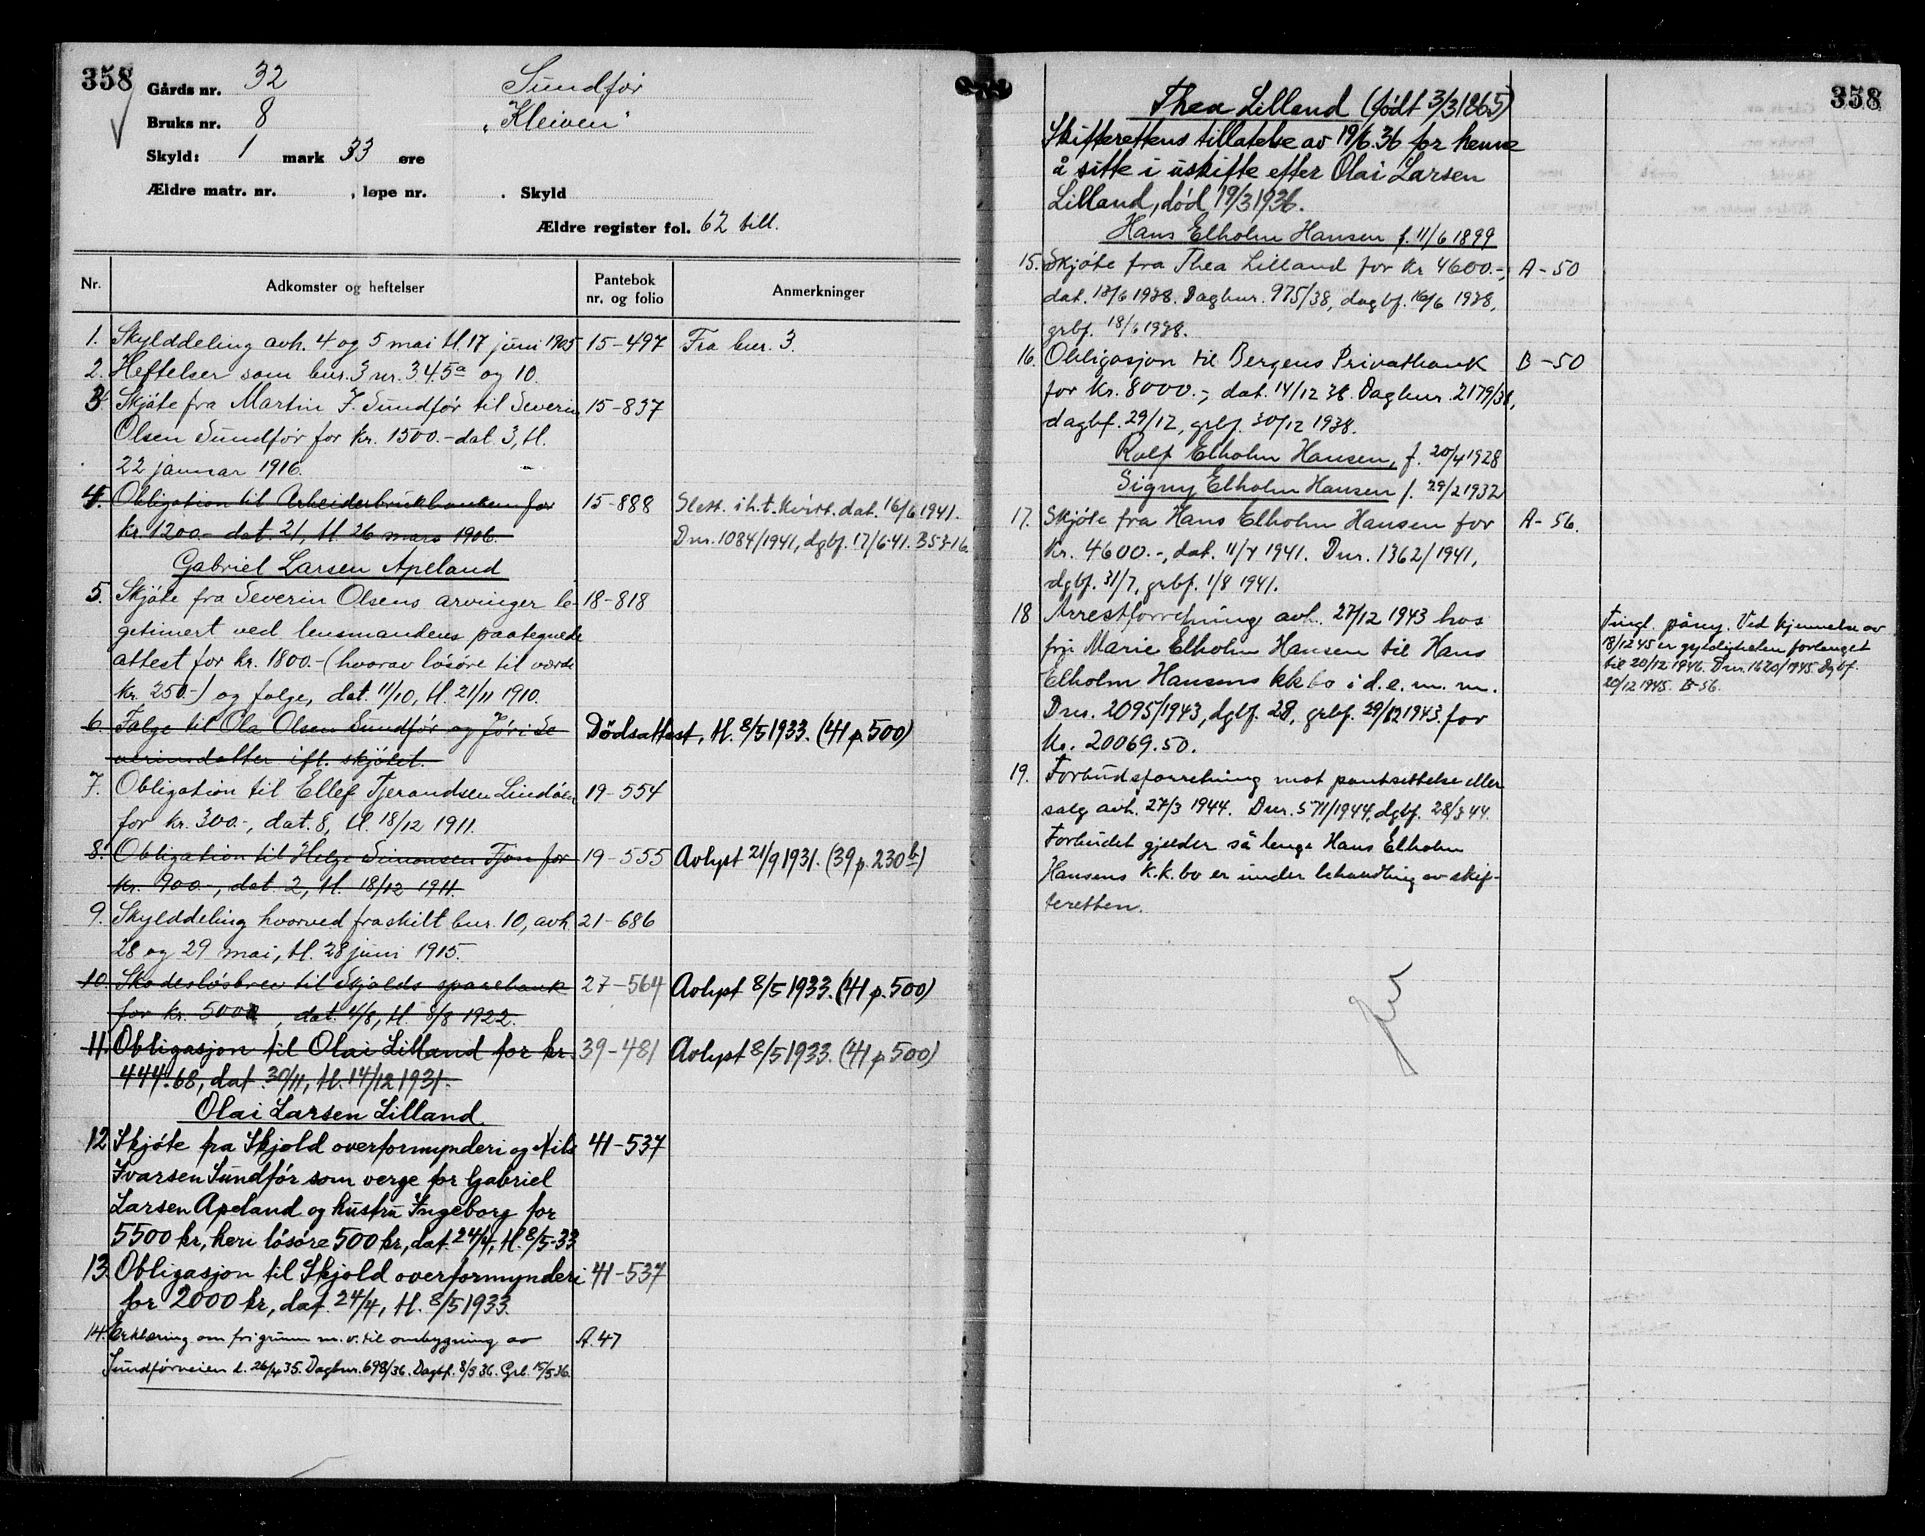 358
Gårds nr. 32 Sundfør
Bruks nr. 8 "Kleiven"
Skyld: 1 mark 33 øre
Ældre matr. nr. , løpe nr. . Skyld
Ældre register fol. 62 till.
Nr. Adkomster og heftelser Pantebok nr. og folio Anmerkninger
1. Skylddeling avh. 4 og 5 mai tl. 17 juni 1905 15-497 Fra bnr. 3.
2. Heftelser som bnr. 3 nr. 3.4.5a og 10.
3. Skjøte fra Martin J. Sundfør til Severin 15-837
Olsen Sundfør for kr. 1500.- dat. 3, tl.
22 januar 1916.
4. Obligation til Arbeiderbrukbanken for 15-888 Slett. i h.t. kvitt. dat. 16/6 1941.
kr. 1200.- dat. 21, tl. 26 mars 1906. Dnr. 1084/1941, dgbf. 17/6-41. B53-16.
Gabriel Larsen Apeland
5. Skjøte fra Severin Olsens arvinger le- 18-818
getimert ved lensmandens paategnede
attest for kr. 1800.- (hvorav løsøre til værdi
kr. 250.-) og følge, dat. 11/10, tl. 21/11 1910.
6. Følge til Ola Olsen Sundfør og Jöri Se Dödsattest, tl. 8/5 1933. (41 p. 500)
verinsdatter ifl. skjøtet.
7. Obligation til Ellef Tjerandsen Lindöen 19-554
for kr. 300.-, dat. 8, tl. 18/12 1911.
8. Obligation til Helge Simonsen Tjon for 19-555 Avlyst 21/9 1931. (39 p. 230b)
kr. 900.-, dat. 2, tl. 18/12 1911.
9. Skylddeling hvorved fraskilt bnr. 10, avh. 21-686
28 og 29 mai, tl. 28 juni 1915.
10. Skadesløsbrev til Skjolds sparebank 27-564 Avlyst 8/5 1933. (41 p. 500)
for kr. 5000, dat. 4/8, tl. 8/8 1922.
11. Obligasjon til Olai Lilland for kr. 39-481 Avlyst 8/5 1933. (41 p 500)
444.68, dat. 30/11, tl. 14/12 1931.
Olai Larsen Lilland.
12 Skjøte fra Skjold overformynderi og Nils 41-537
Ivarsen Sundför som verge for Gabriel
Larsen Apeland og hustru Ingeborg for
5500 kr, heri lösöre 500 kr, dat. 24/4, tl. 8/5-33
13. Obligasjon til Skjold overformynderi 41-537
for 2000 kr, dat. 24/4, tl. 8/5 1933.
14. Erklæring om fri grunn m.v. til ombygning av A. 47
Sundførveien d. 26/4 35. Dagbnr. 698/36. Dagbf. 8/5 36. Grb. 15/5 36.
358
Thea Lilland (født 3/3 1865)
Skifterettens tillatelse av 19/6.36 for henne
å sitte i uskifte efter Olai Larsen
Lilland, død 19/3 1936.
Hans Elholm Hansen f. 11/6 1899
15. Skjøte fra Thea Lilland for kr 4600.-, A-50
dat. 13/6 1938. Dagbnr. 975/38, dagbf. 16/6 1938,
grbf. 18/6 1938.
16. Obligasjon til Bergens Privatbank B-50
for kr. 8000.-, dat. 14/12 38. Dagbnr. 2179/38,
dagbf. 29/12, grbf. 30/12 1938.
Rolf Elholm Hansen, f. 20/4 1928
Signy Elholm Hansen f. 29/2 1932
17. Skjøte fra Hans Elholm Hansen for A-56.
kr. 4600.-, dat. 11/7 1941. Dnr. 1362/1941,
dgbf. 31/7, grbf. 1/8 1941.
18 Arrestforretning avh. 27/12 1943 hos Tingl. påny. Ved kjennelse av
frp. Marie Elholm Hansen til Hans 18/12 45 er gyldigheten forlenget
Elholm Hansens kkbo i d.e.m.m. til 20/12 1946. Dnr. 1620/1945. Dgbf.
Dnr. 2095/1943, dgbf. 28, grbf. 29/12 1943. for 20/12 1945. B-56.
kr. 20069.50.
19. Forbudsforretning mot pantsettelse eller
salg avh. 27/3 1944. Dnr. 571/1944, dgbf. 28/3 44.
Forbudet gjelder så lenge Hans Elholm
Hansens k.k.bo er under behandling av skif-
teretten.